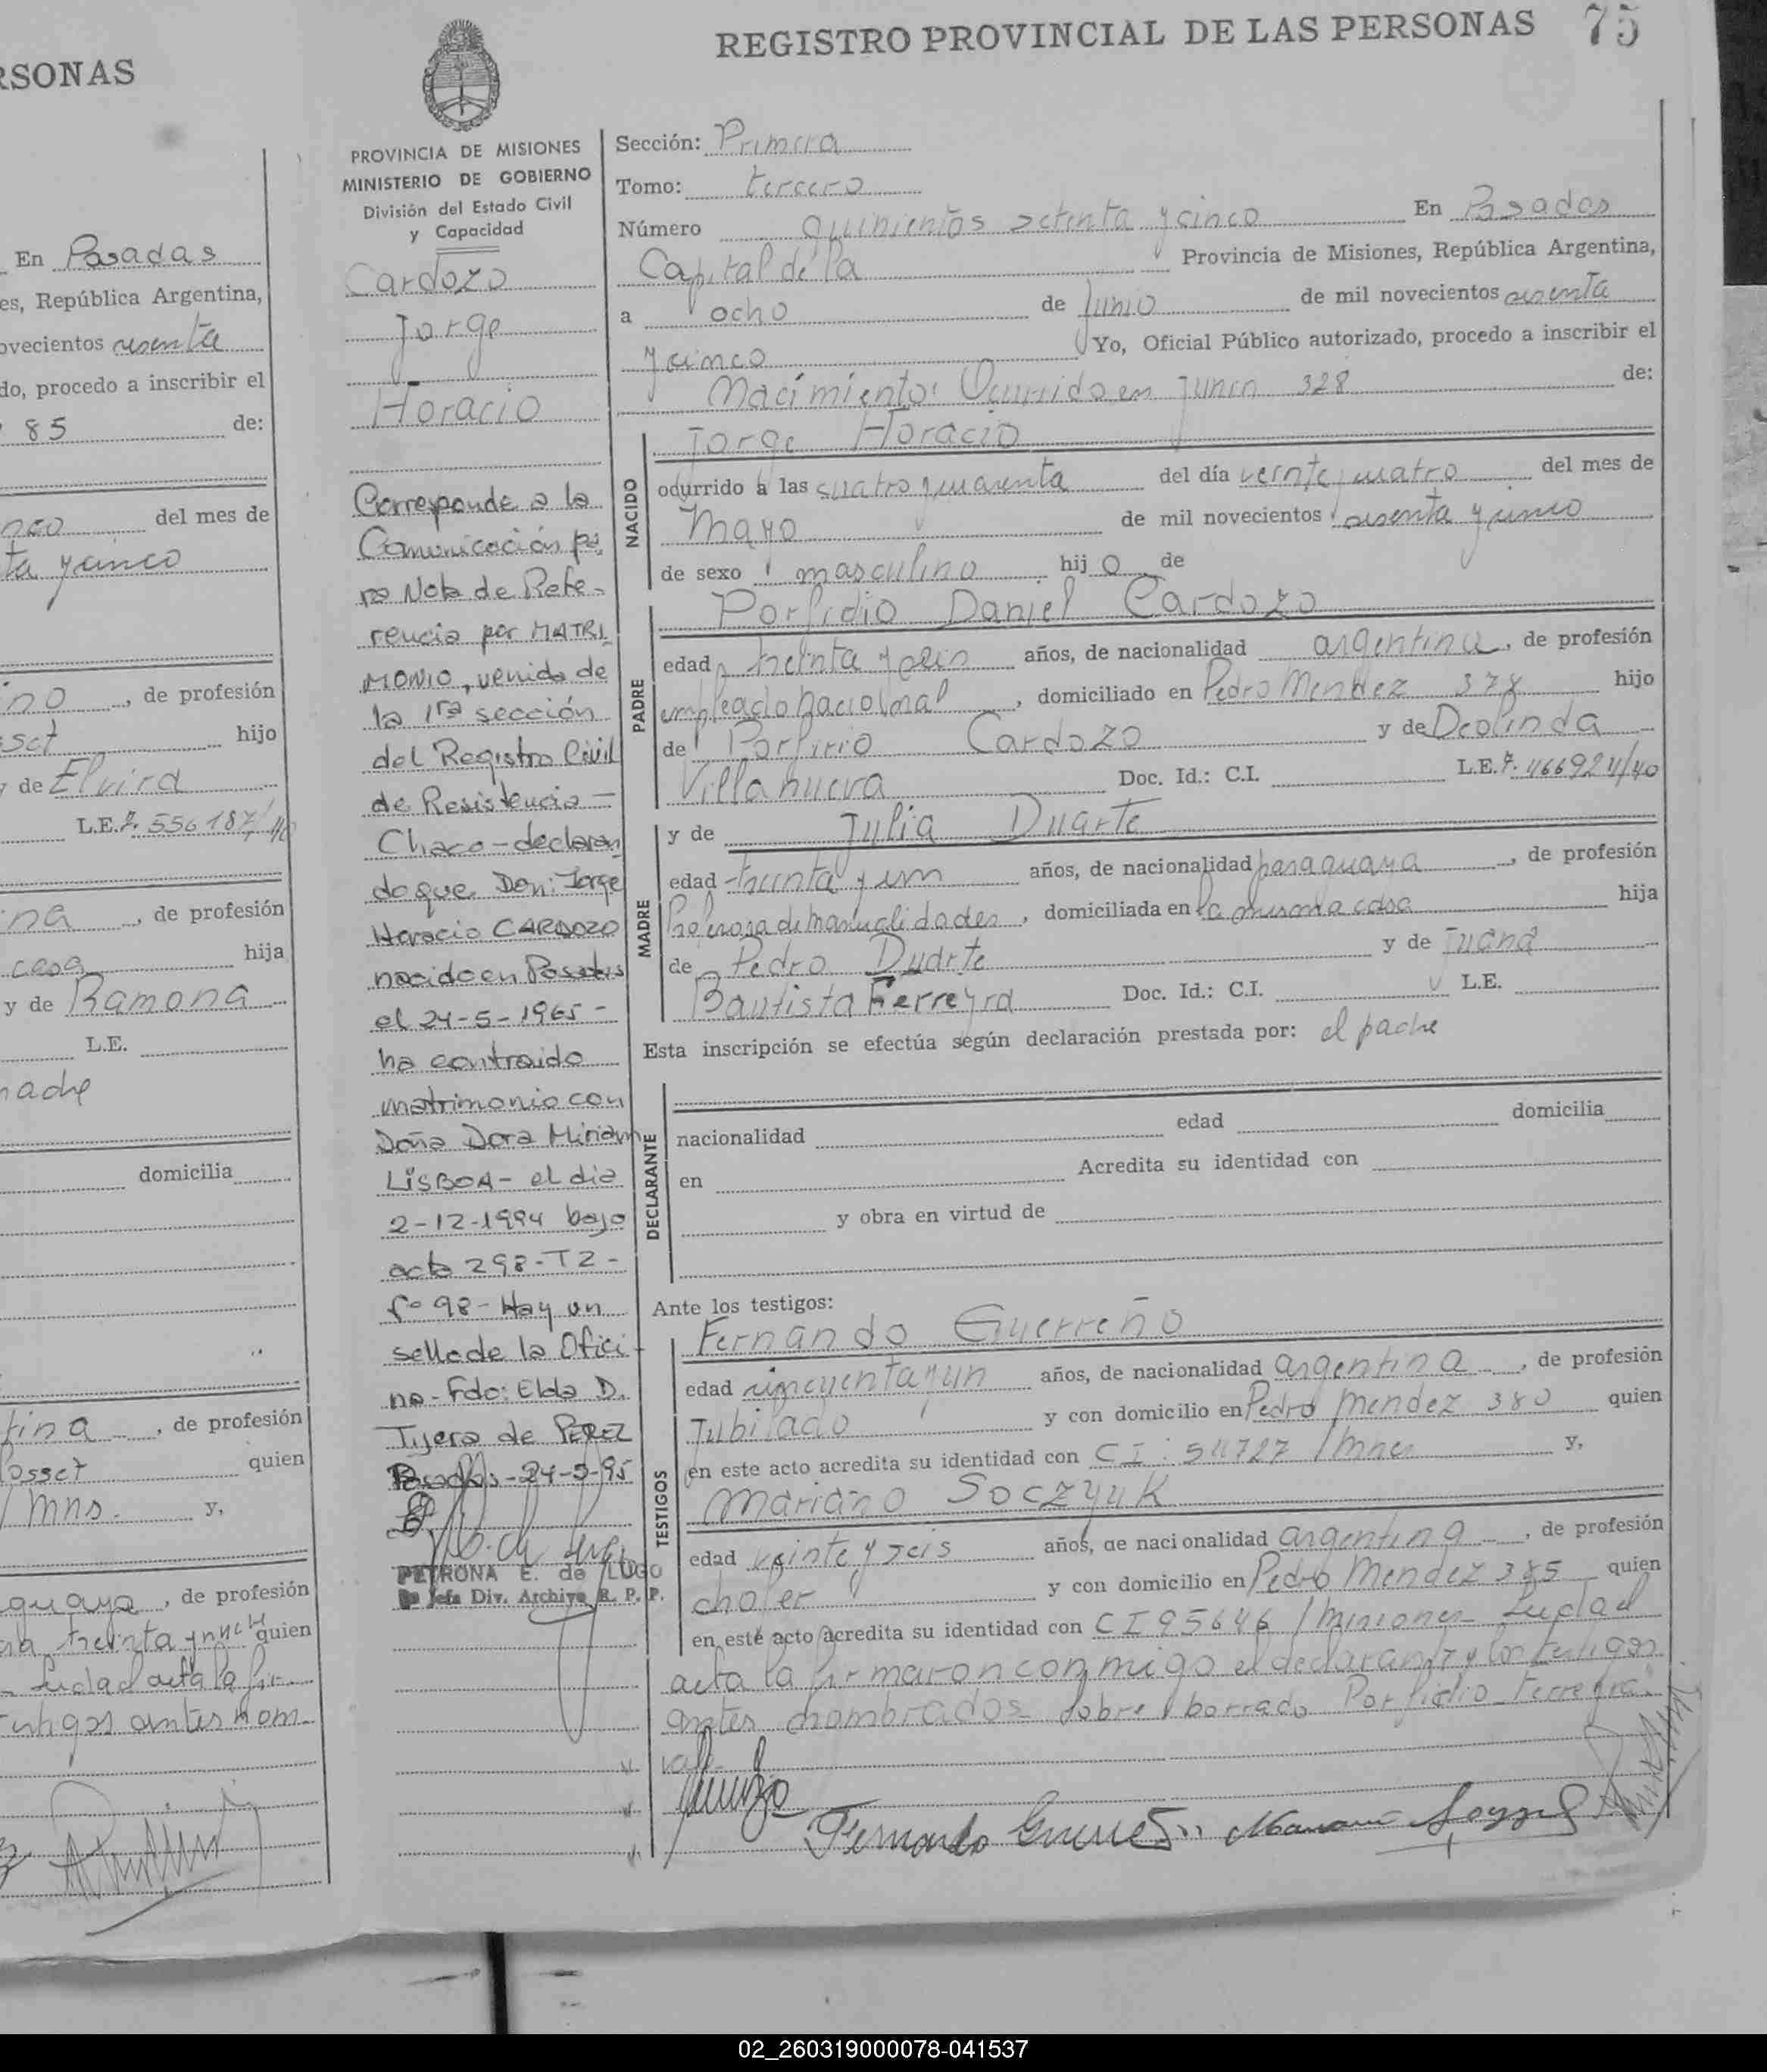 RSONAS
En Posadas
es, República Argentina,
ovecientos sesenta
do, procedo a inscribir el
85 de:
del mes de
ta y cinco
ino, de profesión
hijo
y de Elvira
L.E. 556187/40
ina, de profesión
casa hija
y de Ramona
L.E.
madre
domicilia
tina, de profesión
Posset quien
/ Mns. y,
guaya, de profesión
treinta y quien
Leida el acta la fir-
testigos antes nom-
REGISTRO PROVINCIAL DE LAS PERSONAS 75
PROVINCIA DE MISIONES
MINISTERIO DE GOBIERNO
División del Estado Civil
y Capacidad
Cardozo
Jorge
Horacio
Corresponde a la
Comunicación pa
ra Nota de Refe-
rencia por MATRI
MONIO, venida de
la 1ra sección
del Registro Civil
de Resistencia-
Chaco-declaran
do que Don: Jorge
Horacio CARDOZO
nacido en Posadas
el 24-5-1965-
ha contraido
matrimonio con
Doña Dora Miriam
LISBOA- el dia
2-12-1994 bajo
acta 298-T2-
fº 98- Hay un
sello de la Ofici-
na- Fdo: Elda D.
Tijera de PEREZ
Posadas-24-5-95
PETRONA E. de LUGO
Jefa Div. Archivo R. P. P.
Sección: Primera
Tomo: tercero
Número quinientos setenta y cinco En Posadas
Capital de la Provincia de Misiones, República Argentina,
a ocho de Junio de mil novecientos sesenta
y cinco Yo, Oficial Público autorizado, procedo a inscribir el
Nacimiento: Ocurrido en Junin 328 de:
NACIDO
Jorge Horacio
ocurrido a las cuatro y cuarenta del día veinte y cuatro del mes de
Mayo de mil novecientos sesenta y cinco
de sexo masculino hij o de
PADRE
Porfidio Daniel Cardozo
edad treinta y seis años, de nacionalidad argentina, de profesión
empleado nacional, domiciliado en Pedro Mendez 378 hijo
de Porfirio Cardozo y de Deolinda
Villanueva Doc. Id.: C.I. L.E.
MADRE
y de Julia Duarte
edad treinta y un años, de nacionalidad paraguaya, de profesión
Profesora de manualidades, domiciliada en la misma casa hija
de Pedro Duarte y de Juana
Bautista Ferreyra Doc. Id.: C.I. L.E.
Esta inscripción se efectúa según declaración prestada por: el padre
DECLARANTE
nacionalidad edad domicilia
en Acredita su identidad con
y obra en virtud de
Ante los testigos:
TESTIGOS
Fernando Guerreño
edad cincuenta y un años, de nacionalidad argentina, de profesión
Jubilado y con domicilio en Pedro Mendez 380 quien
en este acto acredita su identidad con CI: 54727 /Mnes y,
Mariano Soczyuk
edad veinte y seis años, de nacionalidad argentina, de profesión
chofer y con domicilio en Pedro Mendez 385 quien
en este acto acredita su identidad con CI 95646 /Misiones Leida el
acta la firmaron conmigo el declarante y los testigos
antes nombrados sobre borrado Porfidio-Ferreyra
vale-
Fernando Guerreño
02_260319000078-041537